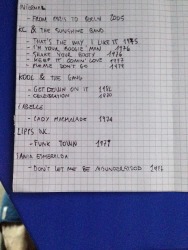 - FROM PARIS TO BERLIN 2005
KC & THE SUNSHINE BAND
- THAT'S THE WAY I LIKE IT 1975
- I'M YOUR BOOGIE MAN 1976
- SHAKE YOUR BOOTY 1976
- KEEP IT COMIN' LOVE 1977
- PLEASE DON'T GO 1979
KOOL & THE GANG
- GET DOWN ON IT 1981
- CELEBRATION 1980
LABELLE
- LADY MARMALADE 1974
LIPPS INC.
- FUNK TOWN 1979
SANTA ESMERALDA
- DON'T LET ME BE MISUNDERSTOOD 1976